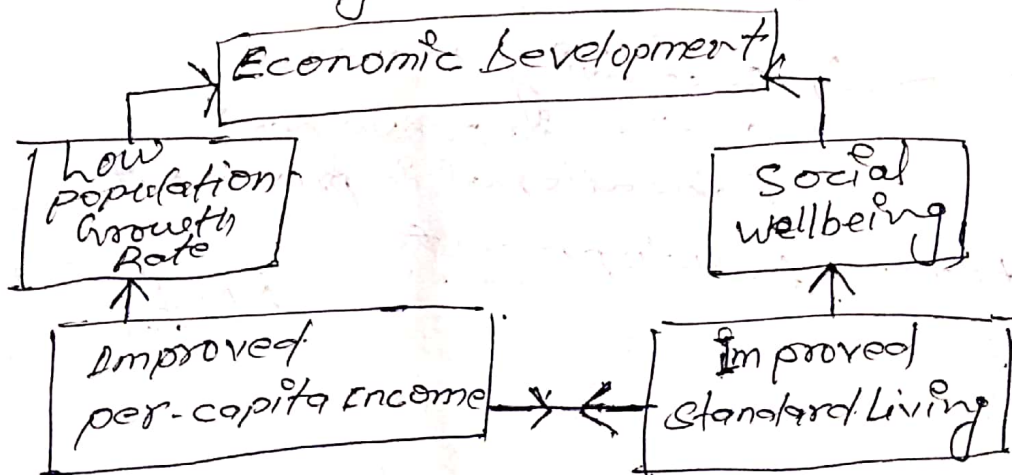 Economic Development
Low
population
Growth
Rate
Social
wellbeing
Improved
per-capita Income
Improved
standard Living